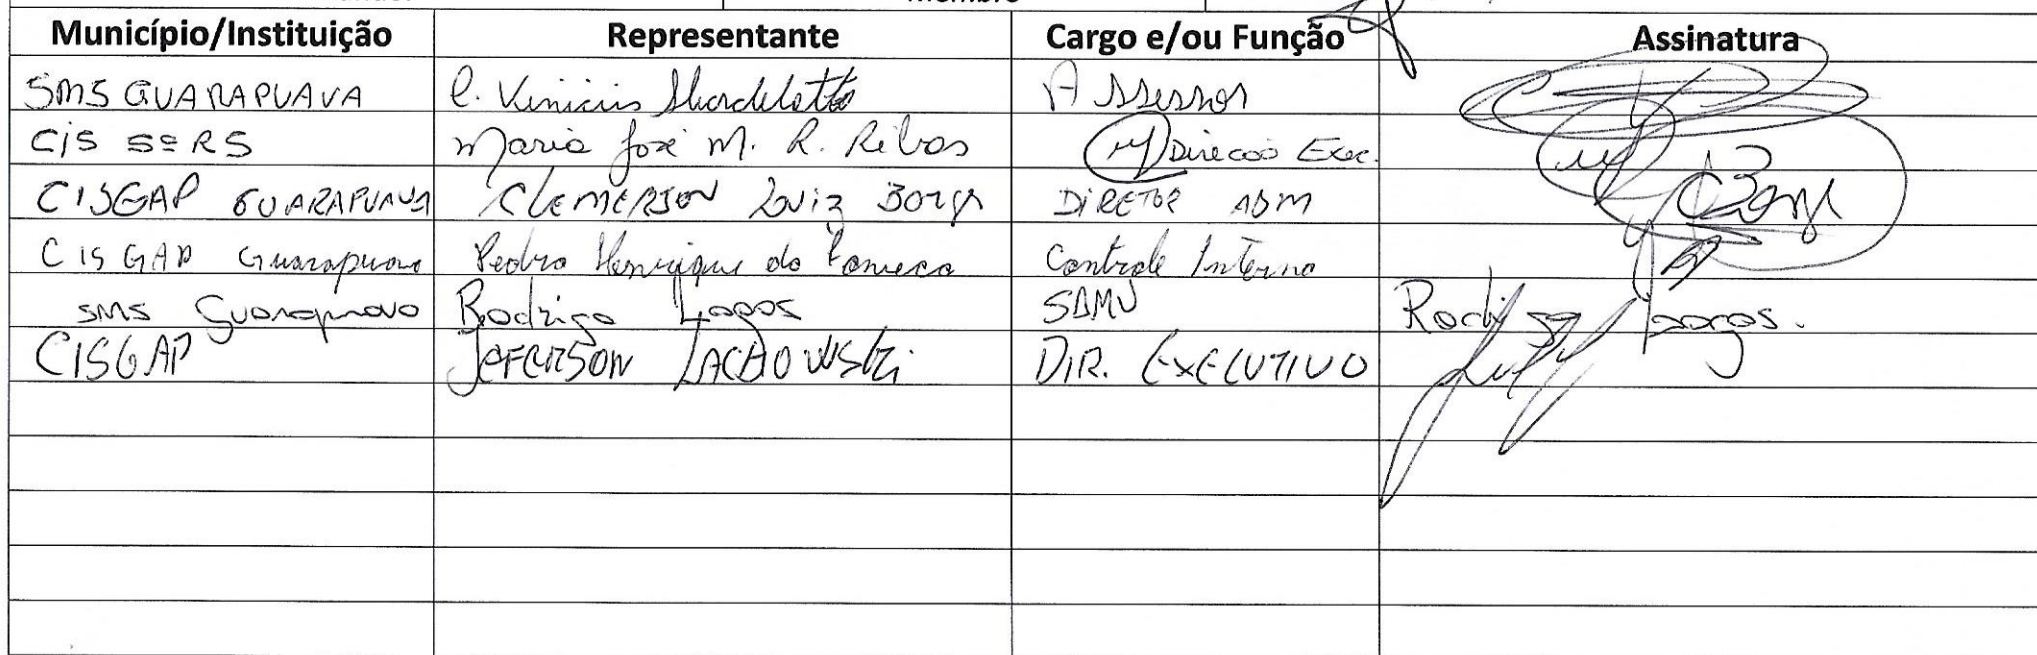 Membro
Município/Instituição Representante Cargo e/ou Função Assinatura
SMS GUARAPUAVA C. Vinicius Assessor
CIS 5ª RS Maria José M. R. Ribas Direcao Exec.
CISGAP GUARAPUAVA CLEMERSON LUIZ Borgs DIRETOR ADM
CISGAP Guarapuava Pedro Henrique da Fonseca Controle Interno
SMS Guarapuava Rodrigo Lagos SAMU Rodrigo Lagos.
CISGAP JEFERSON LACHOWSKI DIR. EXECUTIVO